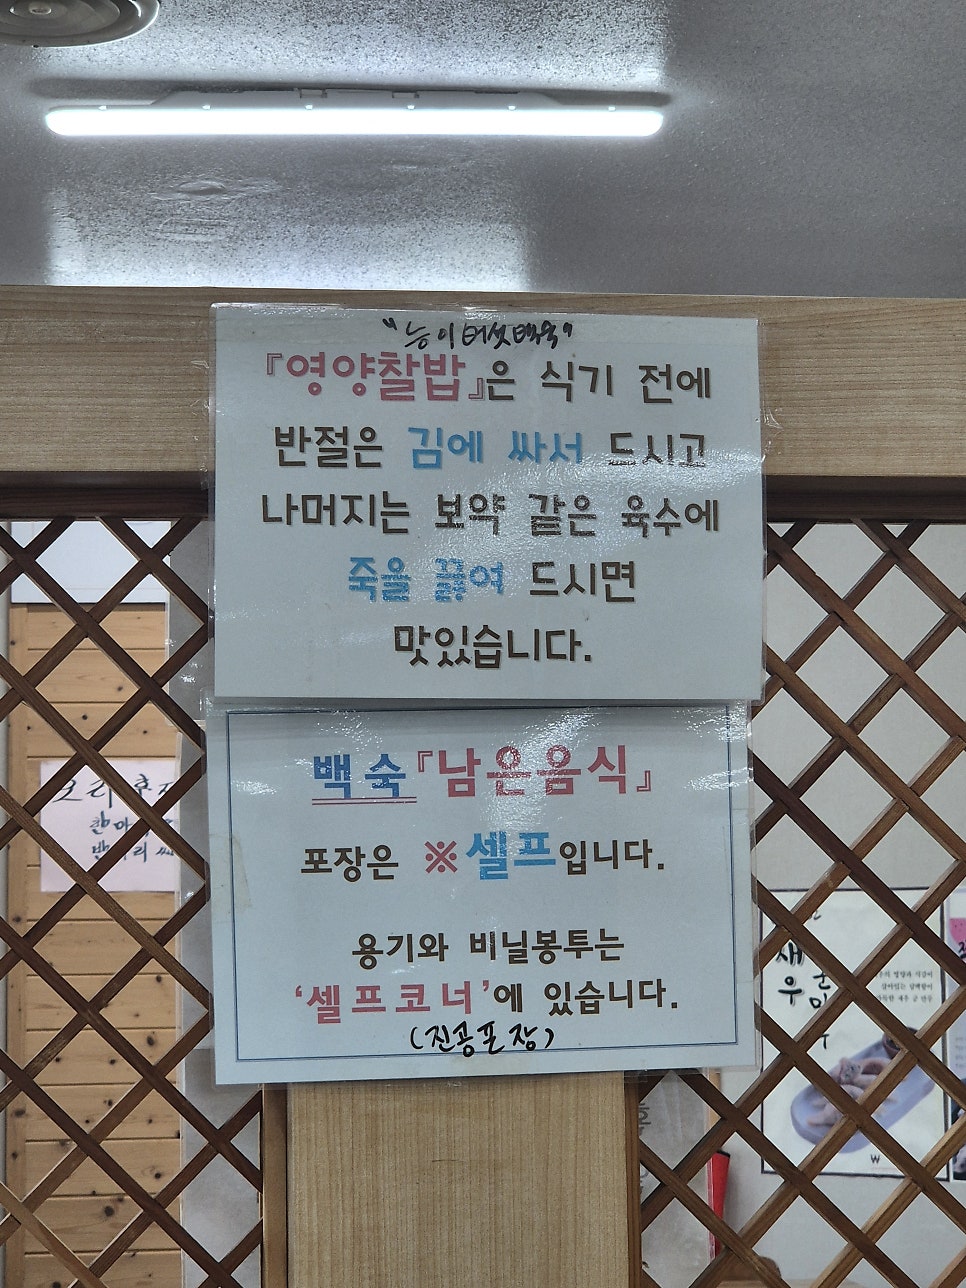 "능이버섯백숙"
『영양찰밥』은 식기 전에
반절은 김에 싸서 드시고
나머지는 보약 같은 육수에
죽을 끓여 드시면
맛있습니다.
백숙『남은음식』
포장은 ※셀프입니다.
용기와 비닐봉투는
'셀프코너'에 있습니다.
(진공포장)
오리
한마
반마리
새우